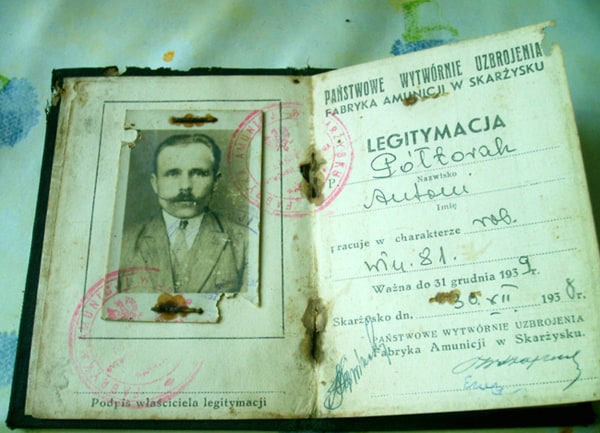 Podpis właściciela legitymacji
PAŃSTWOWE WYTWÓRNIE UZBROJENIA
FABRYKA AMUNICJI W SKARŻYSKU
LEGITYMACJA
P. Półtorak
Nazwisko
Antoni
Imię
pracuje w charakterze rob.
81.
Ważna do 31 grudnia 1939 r.
Skarżysko dn. 30. VII. 1938 r.
PAŃSTWOWE WYTWÓRNIE UZBROJENIA
Fabryka Amunicji w Skarżysku.